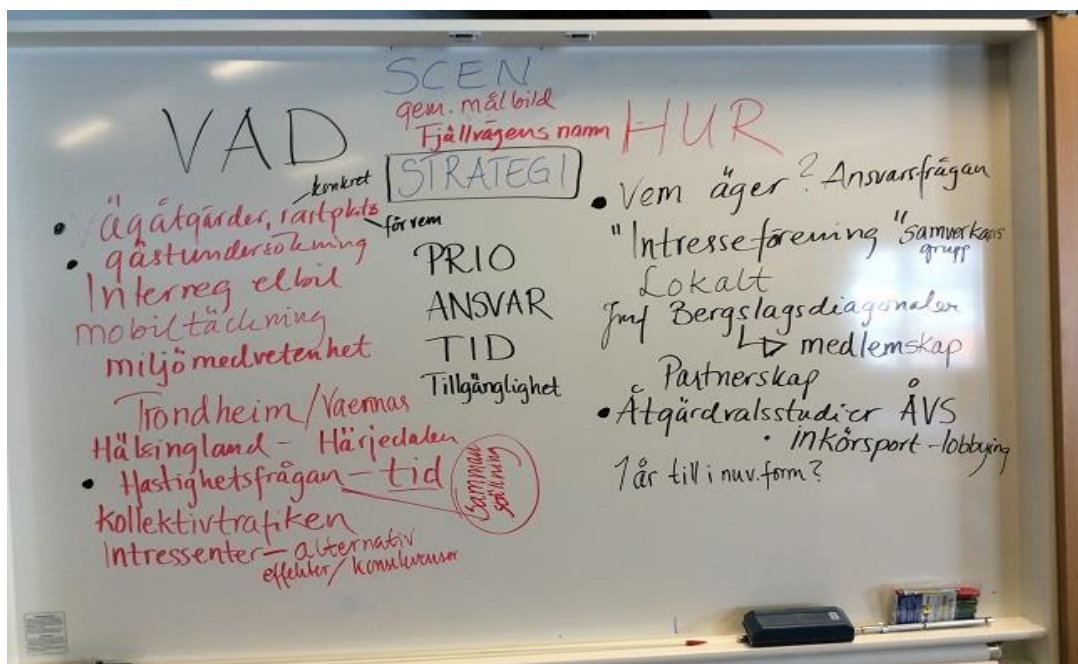 SCEN
gem. målbild
Fjällvägens namn
STRATEGI
PRIO
ANSVAR
TID
Tillgänglighet
VAD
• Vägåtgärder, rastplats
konkret
för vem
• gästundersökning
Interreg elbil
mobiltäckning
miljömedvetenhet
Trondheim/Vaernas
Hälsingland - Härjedalen
• Hastighetsfrågan - tid
Samman
ställning
Kollektivtrafiken
Intressenter - alternativ
effekter/konsekvenser
HUR
• Vem äger? Ansvarsfrågan
"Intresseförening" samverkans
grupp
Lokalt
Jmf Bergslagsdiagonalen
medlemskap
Partnerskap
• Åtgärdvalsstudier ÅVS
• inkörsport - lobbying
1 år till i nuv. form?